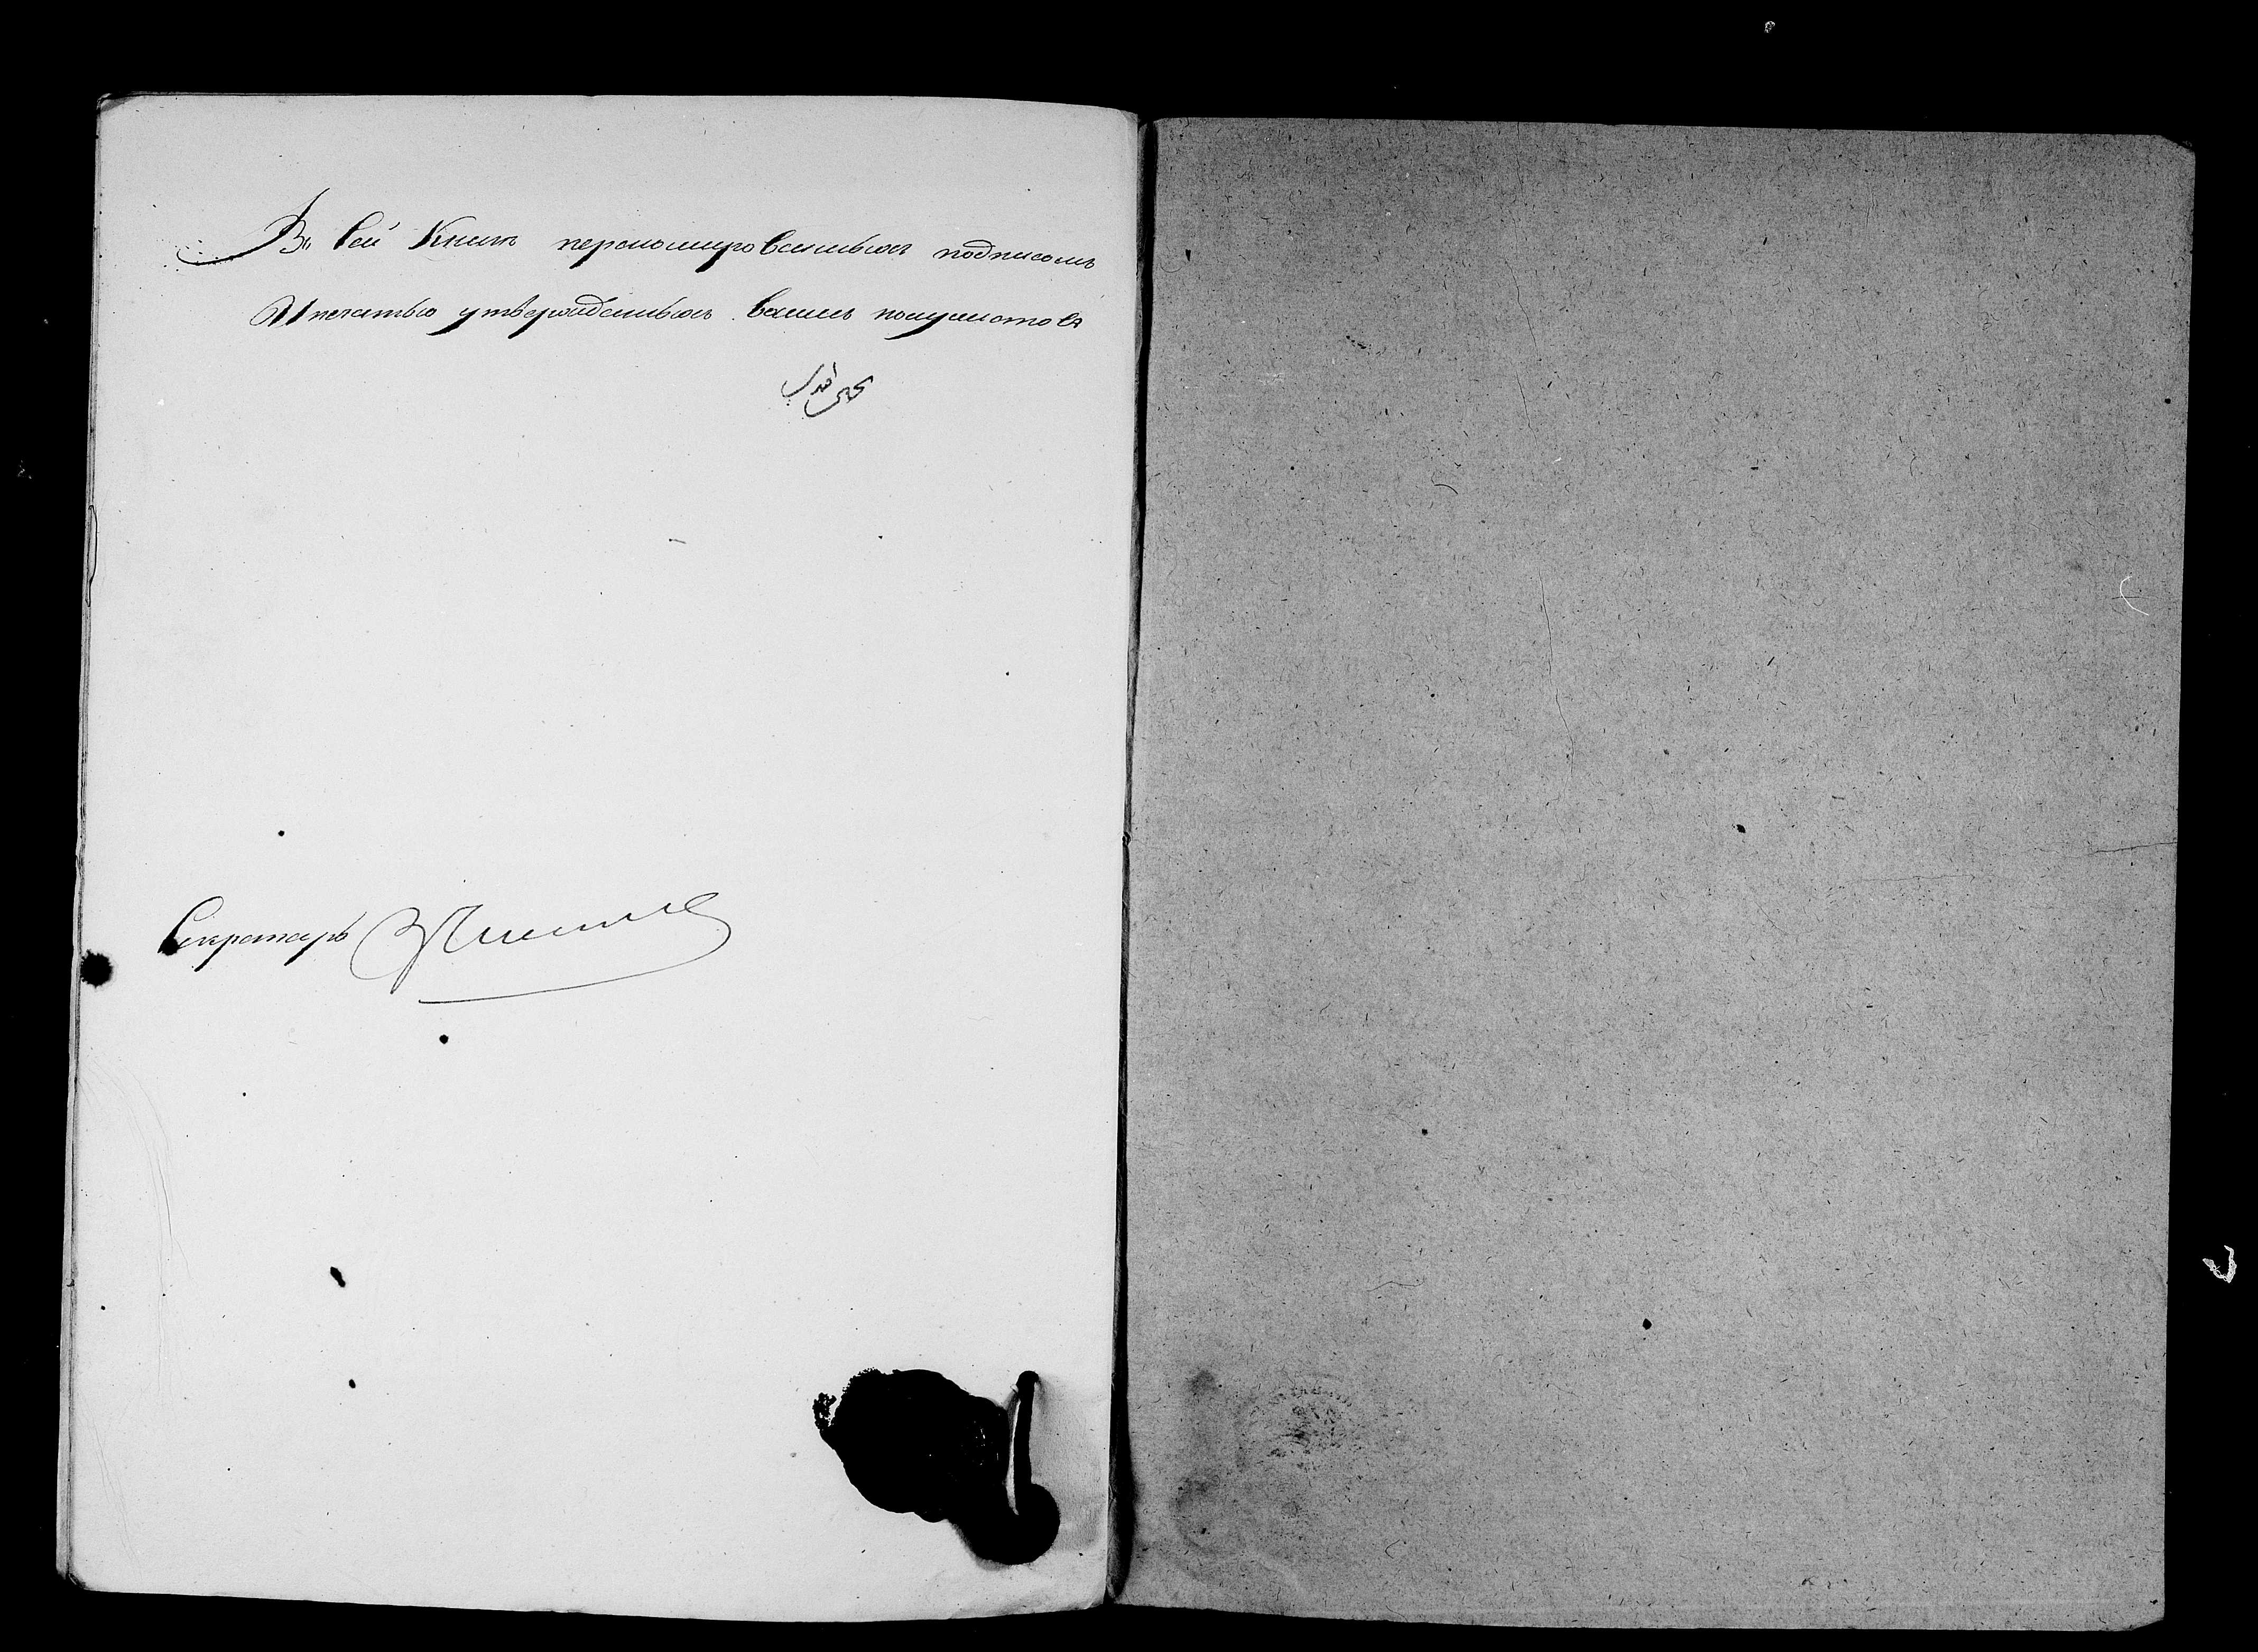 Въ сей Книгѣ перономированныхъ подписомъ
И печатью утвержденныхъ восемь полулистовъ
Секретарь